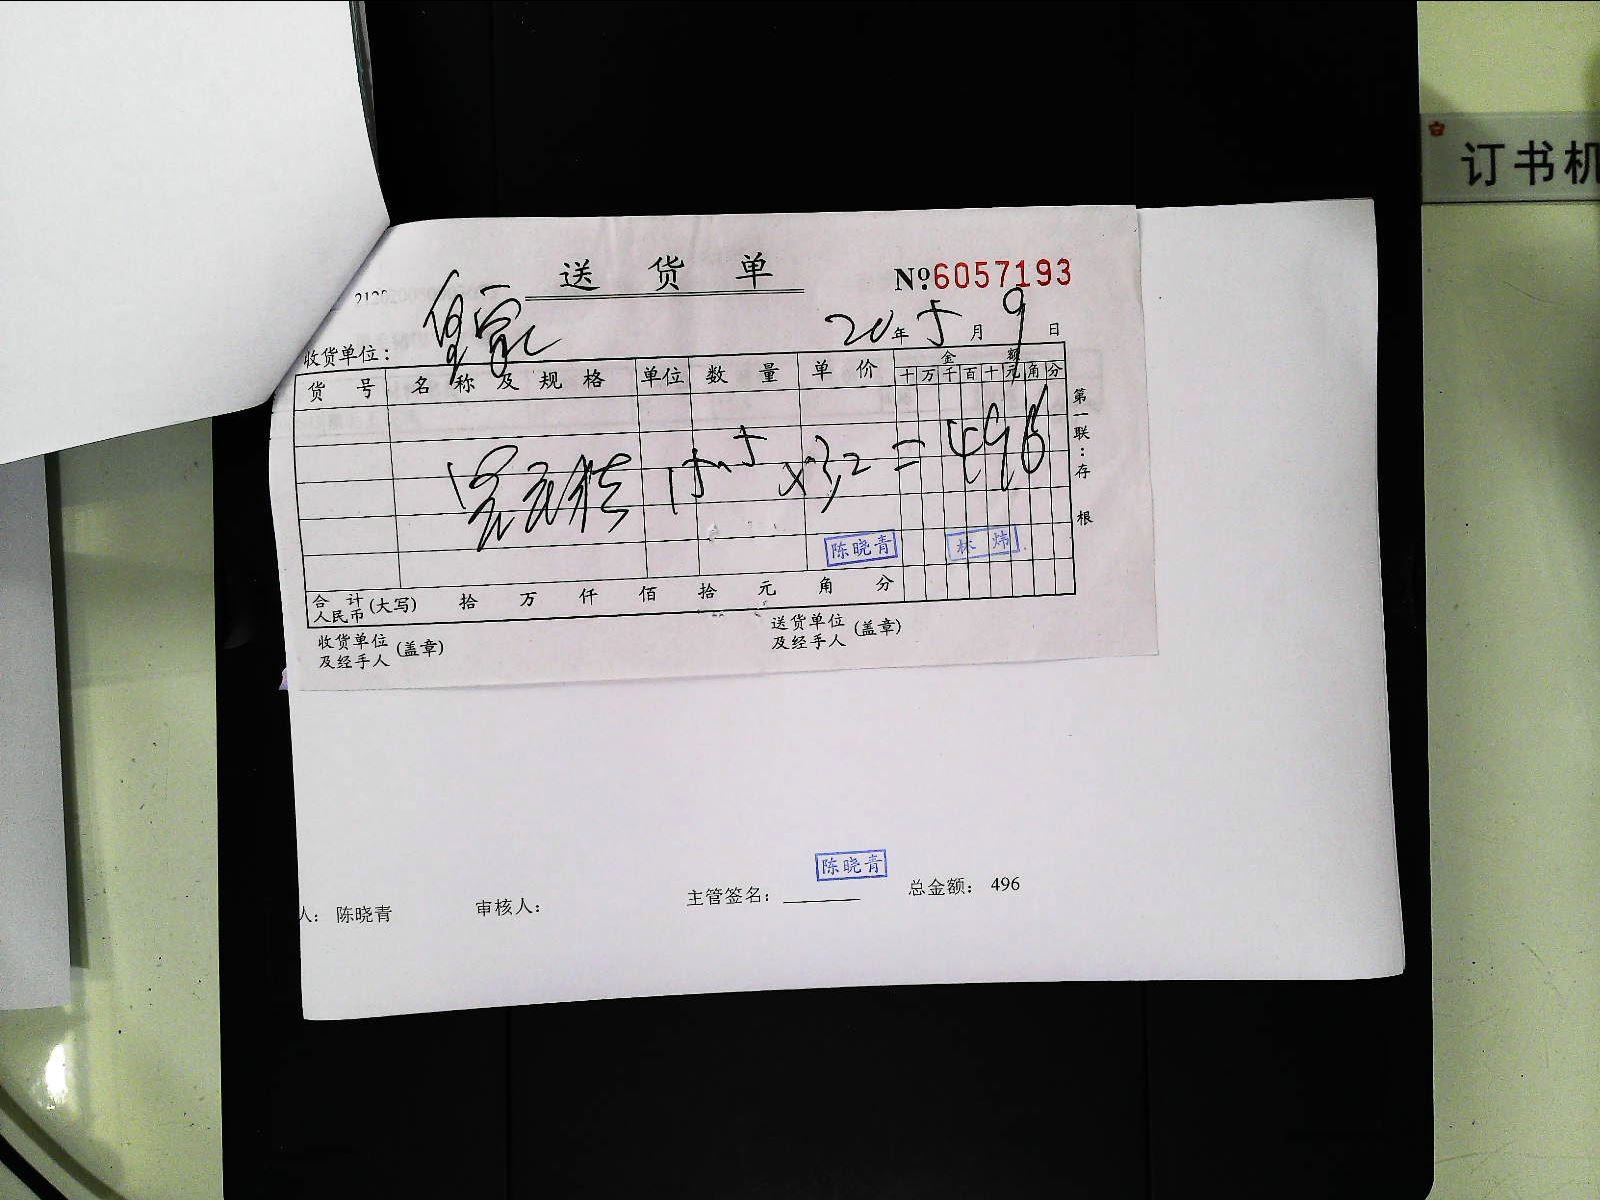 订书机
送货单
№6057193
皇家
20年5月9日
收货单位：
金额
货号 名称及规格 单位 数量 单价 十万千百十元角分
第一联：存根
×3.2=496
陈晓青 林炜
合计人民币(大写) 拾 万 仟 佰 拾 元 角 分
收货单位及经手人(盖章)
送货单位及经手人(盖章)
陈晓青
人：陈晓青 审核人： 主管签名： 总金额：496